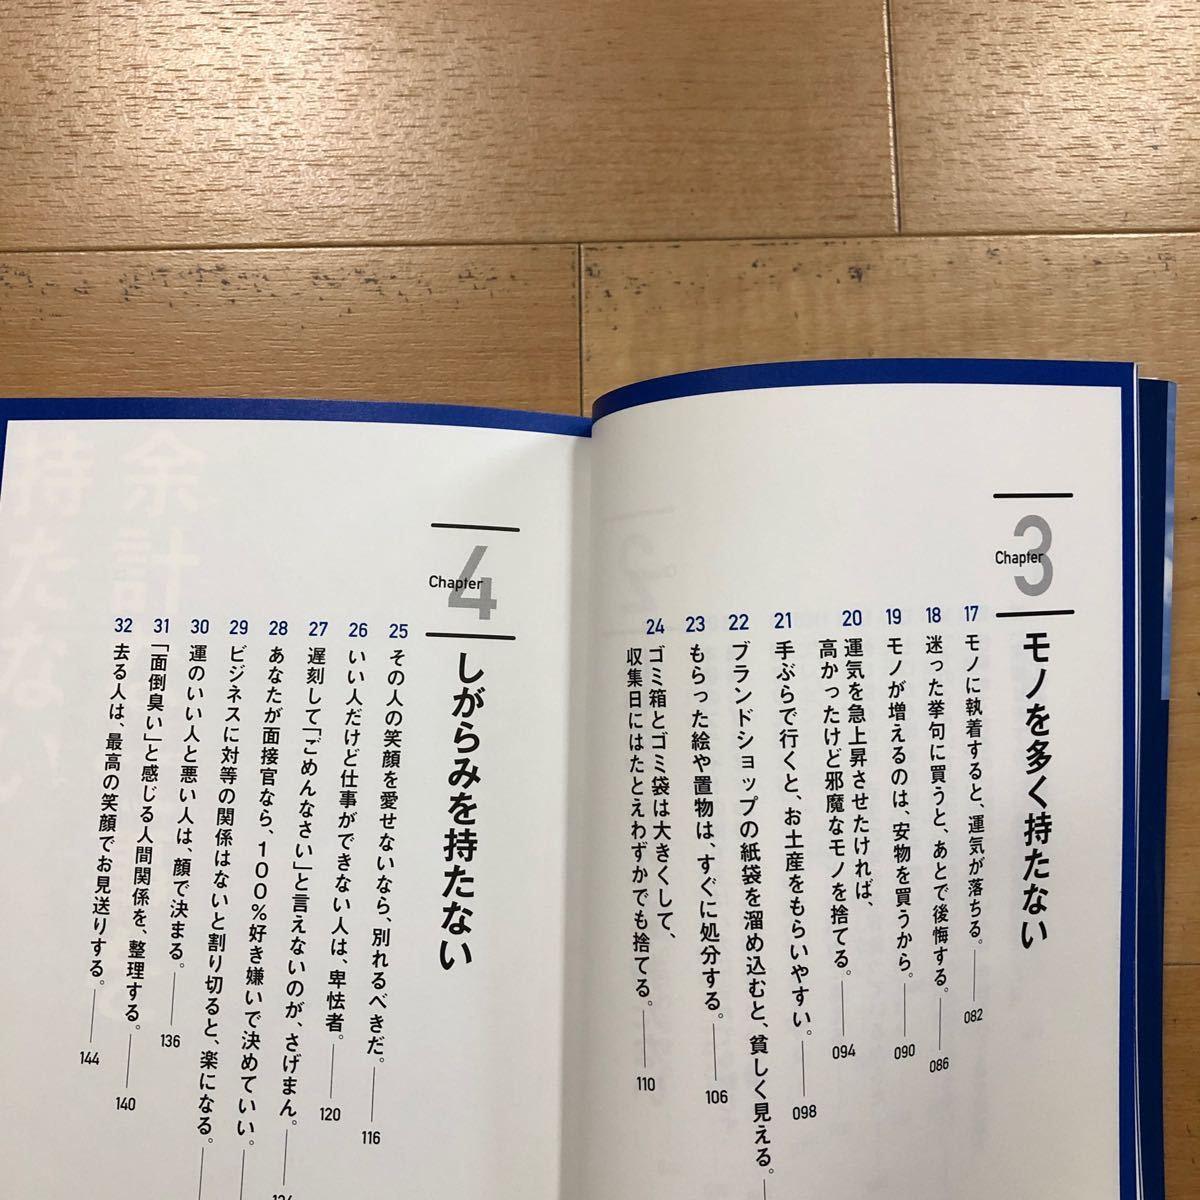 Chapter
3
モノを多く持たない
17
モノに執着すると、運気が落ちる。
082
18
迷った挙句に買うと、あとで後悔する。
086
19
モノが増えるのは、安物を買うから。
090
20
運気を急上昇させたければ、
高かったけど邪魔なモノを捨てる。
094
21
手ぶらで行くと、お土産をもらいやすい。
098
22
ブランドショップの紙袋を溜め込むと、貧しく見える。
23
もらった絵や置物は、すぐに処分する。
106
24
ゴミ箱とゴミ袋は大きくして、
収集日にはたとえわずかでも捨てる。
110
Chapter
4
しがらみを持たない
25
その人の笑顔を愛せないなら、別れるべきだ。
116
26
いい人だけど仕事ができない人は、卑怯者。
120
27
遅刻して「ごめんなさい」と言えないのが、さげまん。
28
あなたが面接官なら、100%好き嫌いで決めていい。
29
ビジネスに対等の関係はないと割り切ると、楽になる。
30
運のいい人と悪い人は、顔で決まる。
136
31
「面倒臭い」と感じる人間関係を、整理する。
140
32
去る人は、最高の笑顔でお見送りする。
144